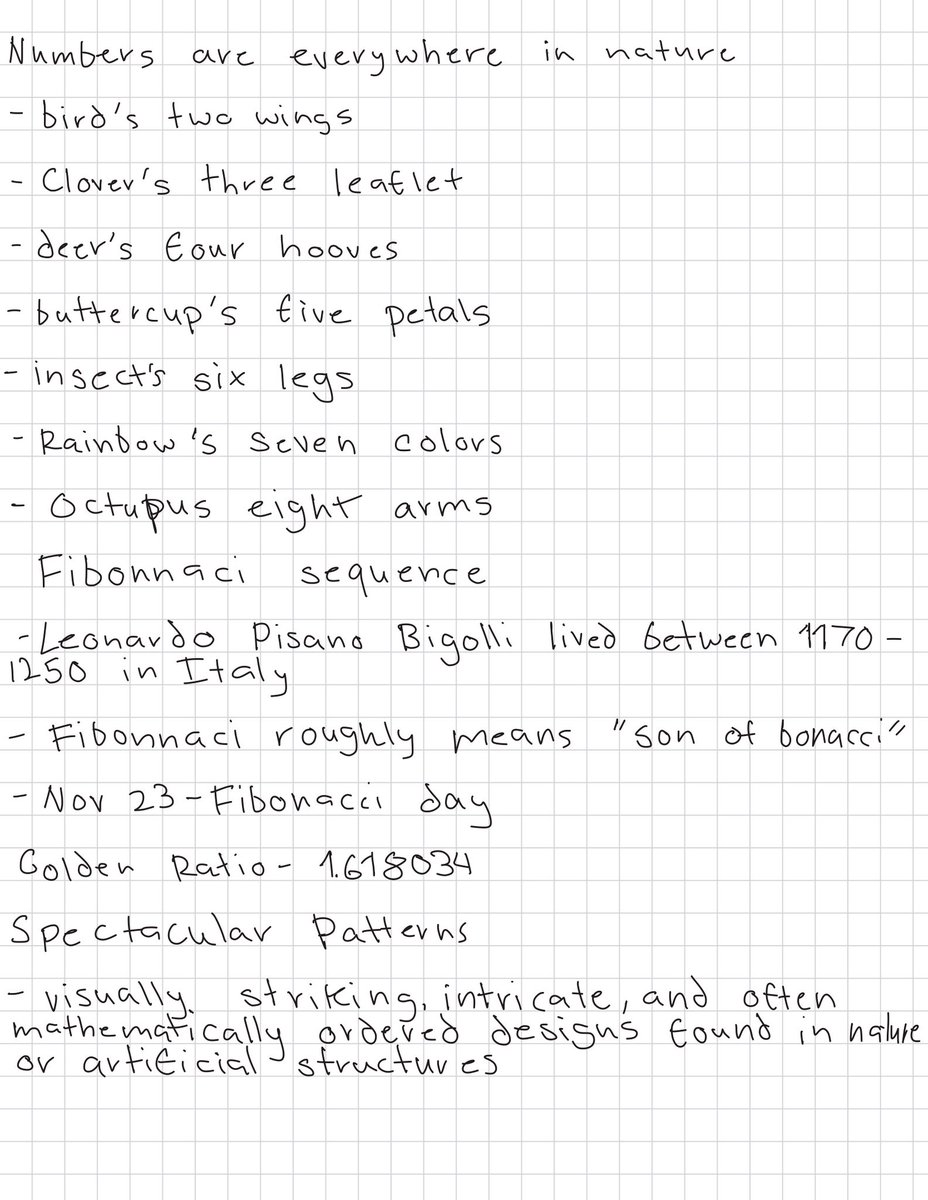 Numbers are everywhere in nature
- bird's two wings
- Clover's three leaflet
- deer's four hooves
- buttercup's five petals
- insect's six legs
- Rainbow's seven colors
- Octupus eight arms
Fibonnaci sequence
- Leonardo Pisano Bigolli lived between 1170 -
1250 in Italy
- Fibonnaci roughly means "son of bonacci"
- Nov 23 - Fibonacci day
Golden Ratio - 1.618034
Spectacular Patterns
- visually striking, intricate, and often
mathematically ordered designs found in nature
or artificial structures